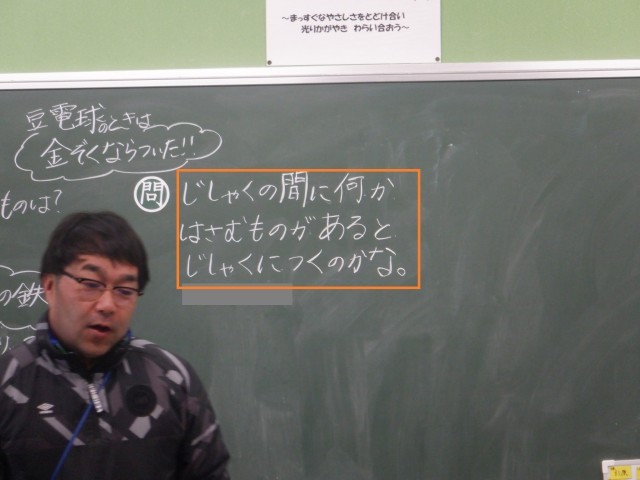 ～まっすぐなやさしさをとどけ合い
光りかがやき わらい合おう～
豆電球のときは
金ぞくならついた!!
ものは?
の鉄
問 じしゃくの間に何か
はさむものがあると
じしゃくにつくのかな。